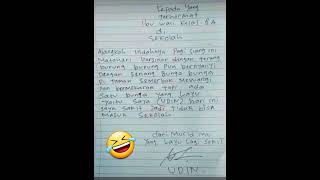 Kepada Yang
Terhormat
Ibu wali Kelas 8A
di
Sekolah
Alangkah indahnya Pagi Siang ini
Matahari bersinar dengan terang
burung burung Pun bernyanyi
Dengan Senang Bunga bunga
Di taman Semerbak Mewangi
Pun bermekaran tapi ada
Satu bunga Yang Layu
Yaitu Saya (UDIN) hari ini
saya Sakit Jadi Tidak bisa
Masuk Sekolah
dari Murid mu
Yang Layu Lagi Sakit
UDIN